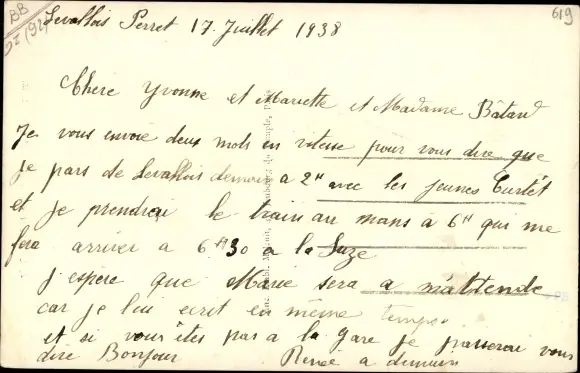 BB
DZ (92)
619
Levallois Perret 17 Juillet 1938
Chere Yvonne et Mariette et Madame Bâtard
Je vous envoie deux mots en vitesse pour vous dire que
je pars de Levallois demain a 2H avec les jeunes
et je prendrai le train au mans à 6H qui me
fera arriver a 6H30 a la Suze
J espère que Marie sera a m'attendre
car je lui ecrit en même temps
et si vous êtes pas a la gare je passerai vous
dire Bonjour Renée a demain